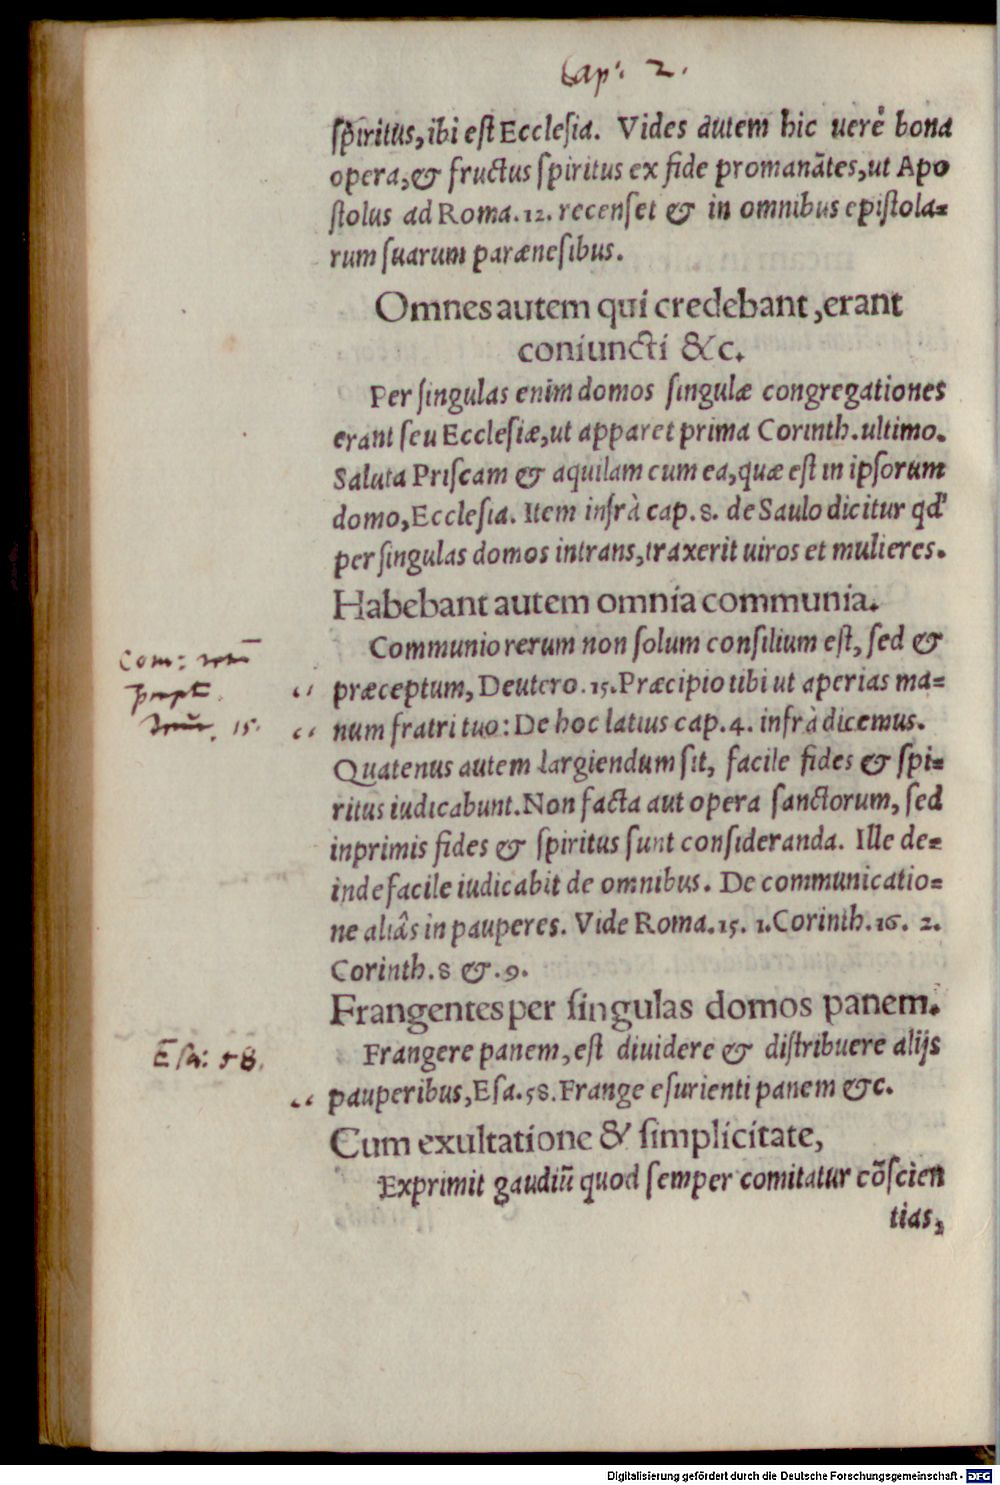 Cap: 2.
spiritus, ibi est Ecclesia. Vides autem hic uerè bona
opera, & fructus spiritus ex fide promanãtes, ut Apo
stolus ad Roma. 12. recenset & in omnibus epistola-
rum suarum parænesibus.
Omnes autem qui credebant, erant
coniuncti &c.
Per singulas enim domos singulæ congregationes
erant seu Ecclesiæ, ut apparet prima Corinth. ultimo.
Saluta Priscam & aquilam cum ea, quæ est in ipsorum
domo, Ecclesia. Item infrà cap. 8. de Saulo dicitur qd'
per singulas domos intrans, traxerit uiros et mulieres.
Habebant autem omnia communia.
Communio rerum non solum consilium est, sed &
Com:
præceptum, Deutero. 15. Præcipio tibi ut aperias ma-
num fratri tuo: De hoc latius cap. 4. infrà dicemus.
15.
Quatenus autem largiendum sit, facile fides & spi-
ritus iudicabunt. Non facta aut opera sanctorum, sed
inprimis fides & spiritus sunt consideranda. Ille de-
inde facile iudicabit de omnibus. De communicatio-
ne aliâs in pauperes. Vide Roma. 15. 1. Corinth. 16. 2.
Corinth. 8 &. 9.
Frangentes per singulas domos panem.
Frangere panem, est diuidere & distribuere alijs
Esa: 58.
pauperibus, Esa. 58. Frange esurienti panem &c.
Cum exultatione & simplicitate,
Exprimit gaudiũ quod semper comitatur cõscien
tias,
Digitalisierung gefördert durch die Deutsche Forschungsgemeinschaft - DFG